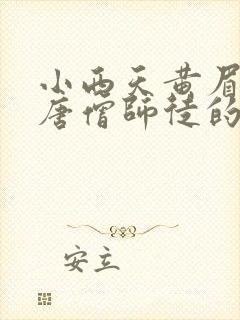 小西天黄眉
唐僧师徒的
安立